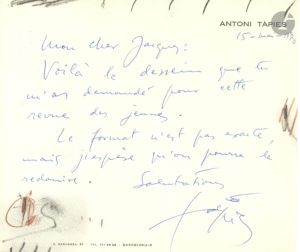 ANTONI TÀPIES
Mon cher Jacques:
Voilà le dessein que tu
m'as demandé pour cette
revue des jeunes.
Le format n'est pas exacte,
mais j'espère qu'on pourra le
reduire.
Salutations
Tàpies
BARCELONA